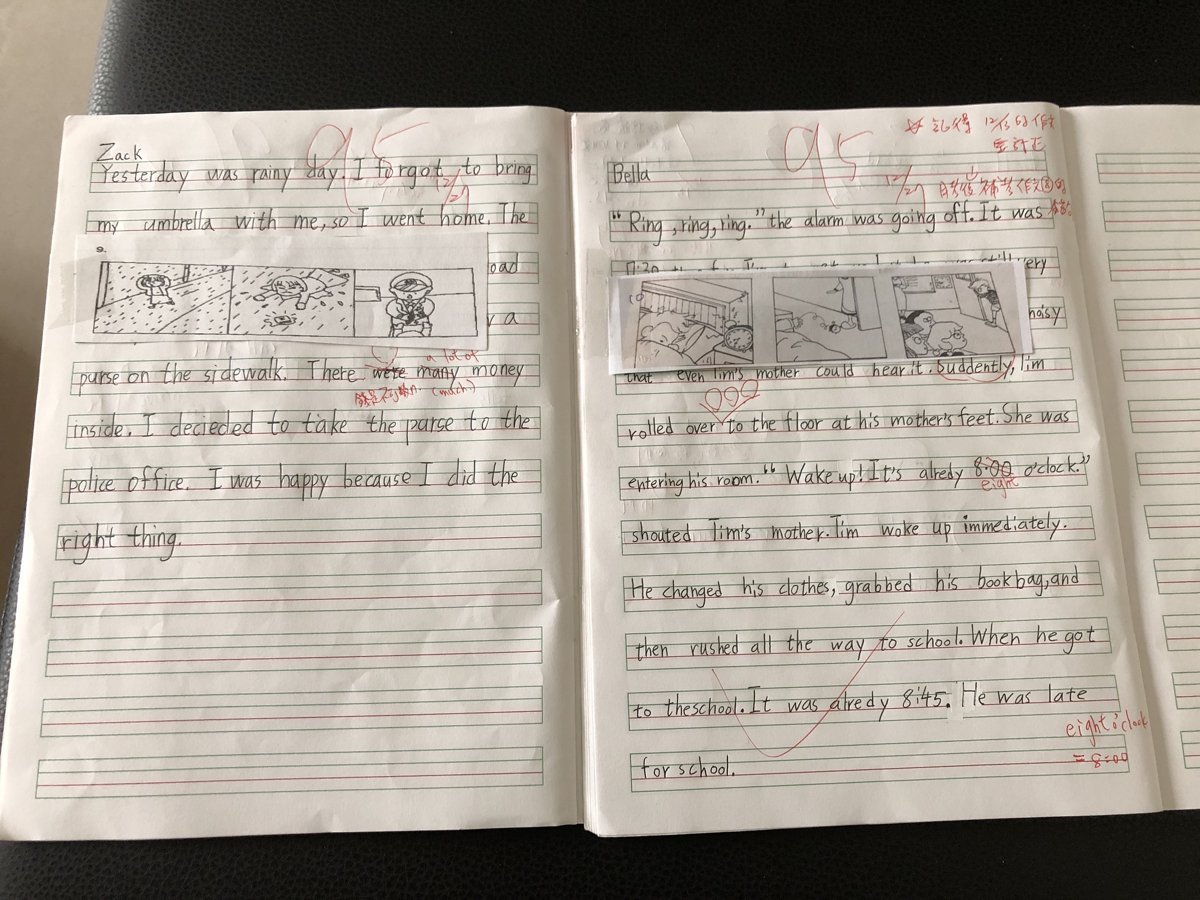 95
Zack
Yesterday was rainy day. I forgot to bring
12/27
my umbrella with me, so I went home. The
9.
oad
a
a lot of
purse on the sidewalk. There were many money
(much.)
inside. I decieded to take the parse to the
police office. I was happy because I did the
right thing.
95
☆ 記得 12/13 的作文
要訂正
Bella
12/27
"Ring, ring, ring." the alarm was going off. It was
very
10
noisy
that even Tim's mother could hear it. Suddently, Tim
rolled over to the floor at his mother's feet. She was
entering his room. "Wake up! It's alredy 8:00 o'clock."
eight
shouted Tim's mother. Tim woke up immediately.
He changed his clothes, grabbed his bookbag, and
then rushed all the way to school. When he got
to theschool. It was alredy 8:45. He was late
eight o'clock
= 8:00
for school.